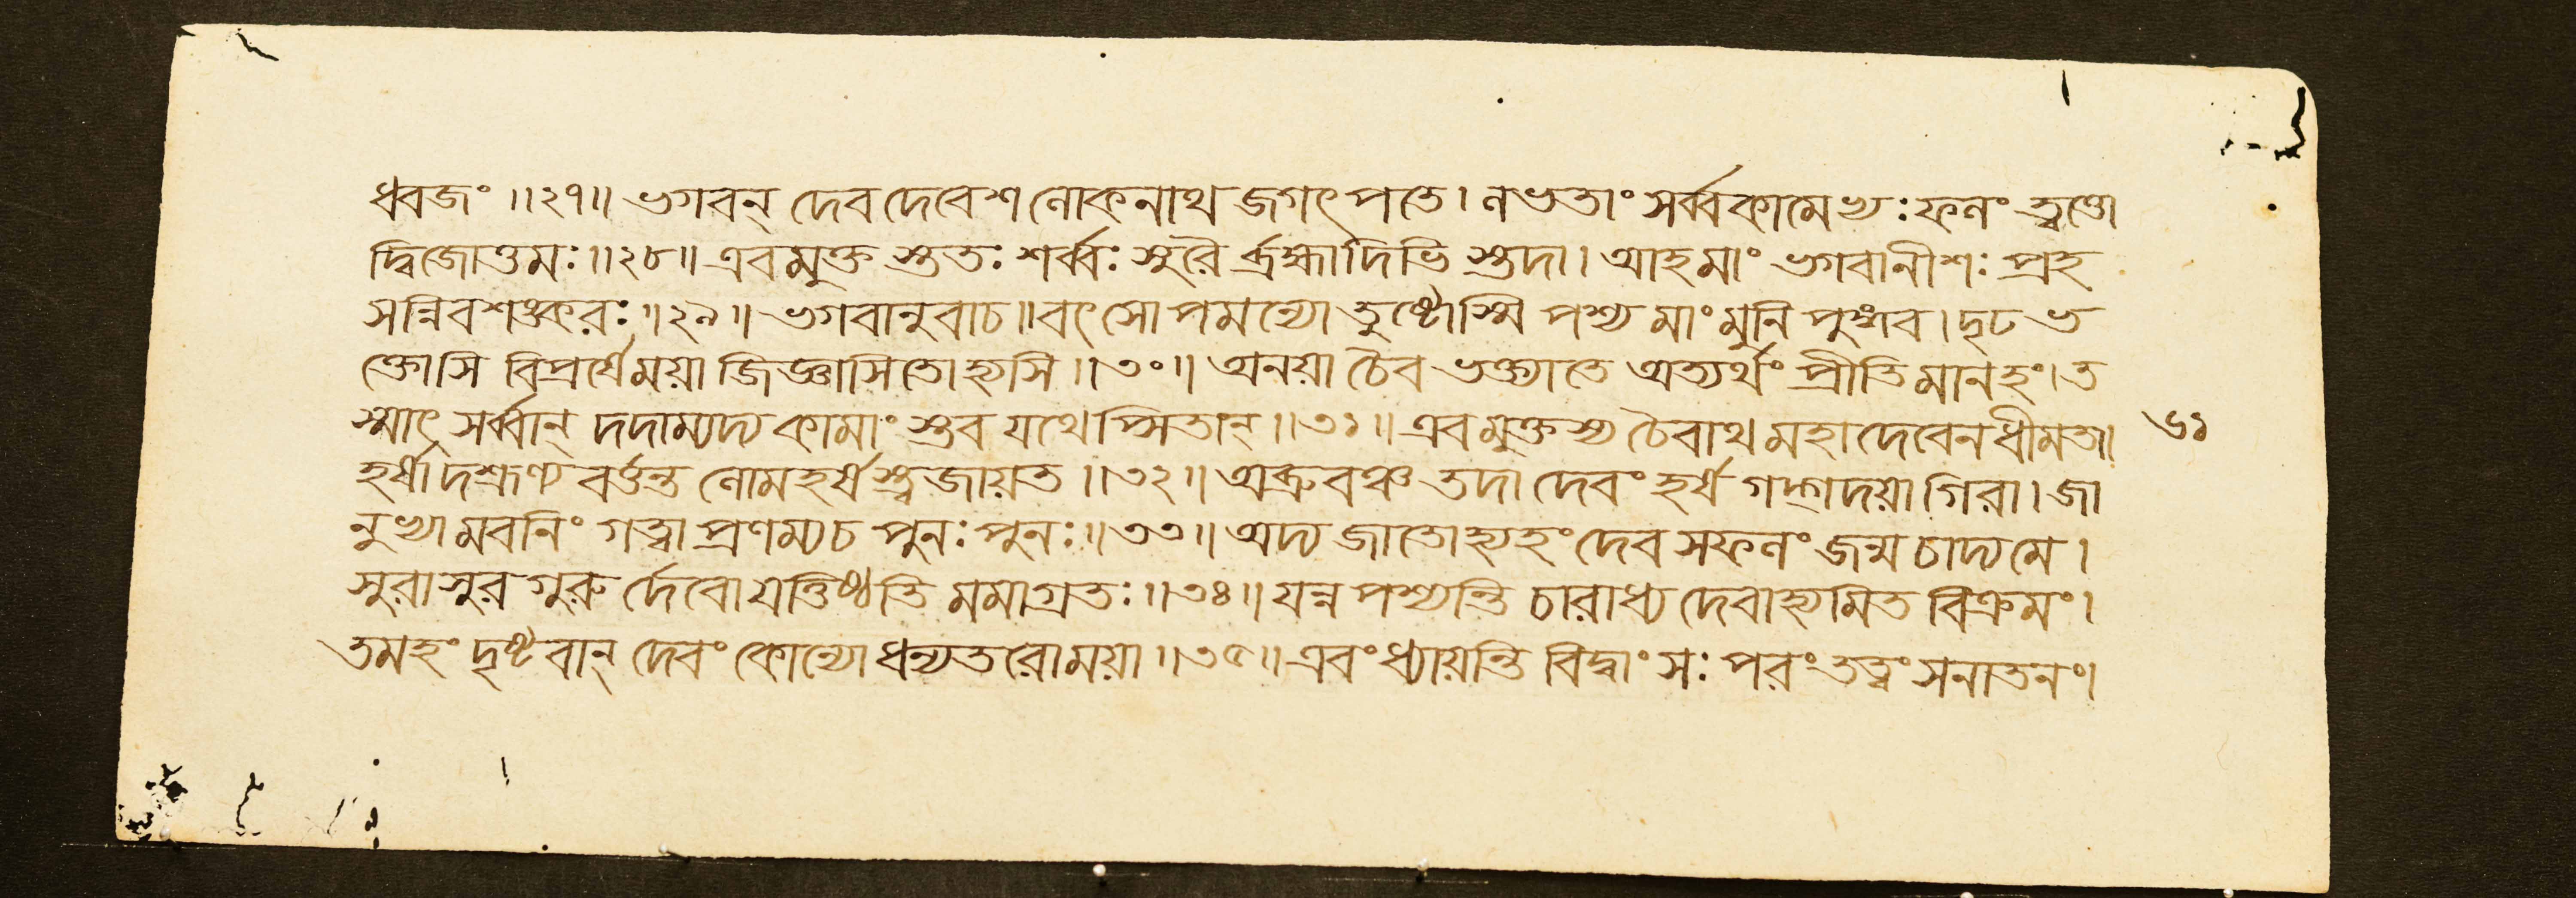 ধ্বজং ॥২৭॥ ভগবন্ দেবদেবেশ লোকনাথ জগৎপতে। লভতাং সর্ব্বকামেভ্যঃ ফলং ত্বত্তো
দ্বিজোত্তমঃ ॥২৮॥ এবমুক্ত স্ততঃ শর্ব্বঃ সুরৈ র্ব্রহ্মাদিভি স্তদা। আহমাং ভগবানীশঃ প্রহ
সন্নিবশঙ্করঃ ॥২৯॥ ভগবানুবাচ॥ বৎসোপমন্যো তুষ্টোস্মি পশ্য মাং মুনি পুঙ্গব। দৃঢ ভ
ক্তোসি বিপ্রর্ষে ময়া জিজ্ঞাসিতোহ্যসি ॥৩০॥ অনয়া চৈব ভক্ত্যাতে অত্যর্থং প্রীতিমানহং। ত
স্মাৎ সর্ব্বান্ দদাম্যদ্য কামাং স্তব যথেপ্সিতান্ ॥৩১॥ এবমুক্তস্য চৈবাথ মহাদেবেন ধীমতা।
৬১
হর্ষা দশ্রূণ্য বর্ত্তন্ত লোমহর্ষ স্ত্ব জায়ত ॥৩২॥ অব্রুবঞ্চ তদা দেবং হর্ষ গদ্গদয়া গিরা। জা
নুভ্যামবনিং গত্বা প্রণম্য চ পুনঃ পুনঃ ॥৩৩॥ অদ্য জাতোহ্যহং দেব সফলং জন্ম চাদ্য মে।
সুরাসুর গুরু র্দেবো যত্তিষ্ঠতি মমাগ্রতঃ ॥৩৪॥ যন্ন পশ্যন্তি চারাধ্য দেবাহ্যমিত বিক্রমং।
তমহং দৃষ্টবান্ দেবং কোন্যো ধন্যতরো ময়া ॥৩৫॥ এবং ধ্যায়ন্তি বিদ্বাংসঃ পরং তত্ত্বং সনাতনং।